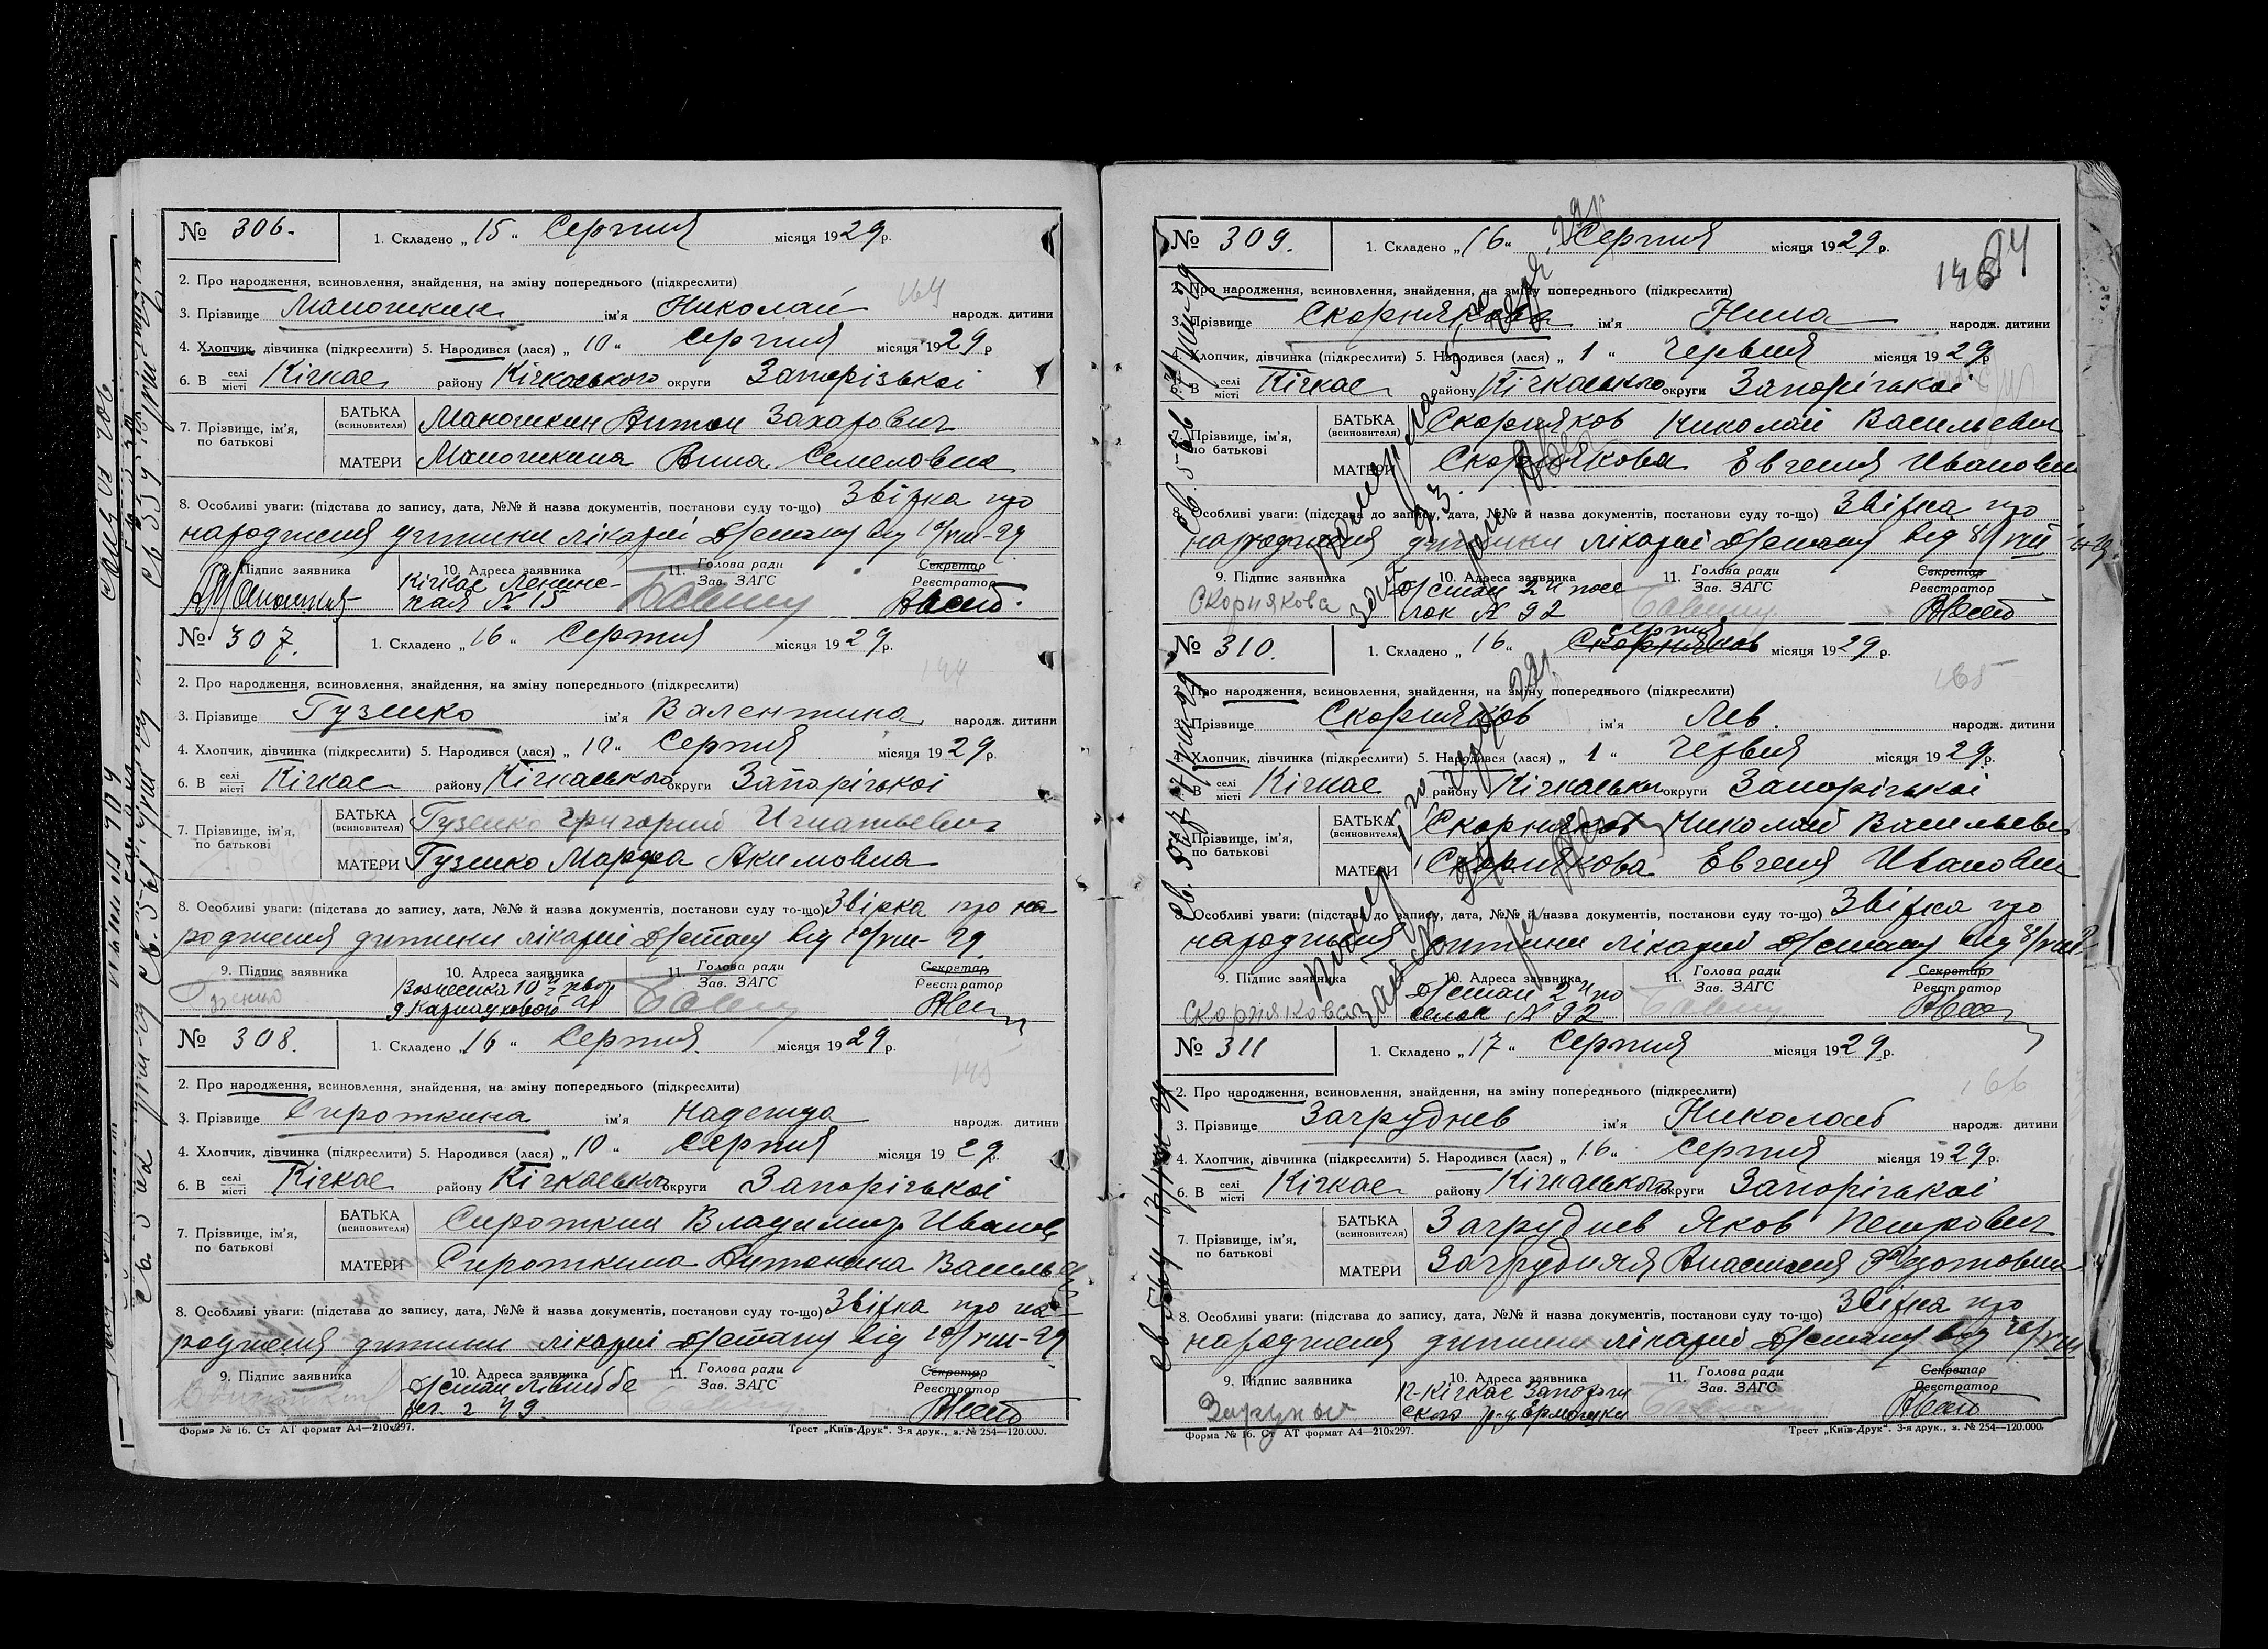 № 306. 1. Складено „ 15 “ Серпня місяця 1929 р.
2. Про народження, всиновлення, знайдення, на зміну попереднього (підкреслити)
3. Прізвище Маношкин ім'я Николай народж. дитини
4. Хлопчик, дівчинка (підкреслити) 5. Народився (лася) „ 10 “ серпня місяця 1929 р
6. В селі місті Кічкас району Кічкаського округи Запорізької
7. Прізвище, ім'я, по батькові
БАТЬКА (всиновителя) Маношкин Антон Захарович
МАТЕРИ Маношкина Анна Семеловна
8. Особливі уваги: (підстава до запису, дата, №№ й назва документів, постанови суду то-що) Звірка про
народження дитини лікарні Д/стану від 10/VIII-29
9. Підпис заявника 10. Адреса заявника Кічкас Ленинс-
кая № 15 11. Голова ради Зав. ЗАГС Секретар Реєстратор
№ 307. 1. Складено „ 16 “ Серпня місяця 1929 р.
2. Про народження, всиновлення, знайдення, на зміну попереднього (підкреслити)
3. Прізвище Гузенко ім'я Валентина народж. дитини
4. Хлопчик, дівчинка (підкреслити) 5. Народився (лася) „ 10 “ Серпня місяця 1929 р.
6. В селі місті Кічкас району Кічкаського округи Запорізької
7. Прізвище, ім'я, по батькові
БАТЬКА (всиновителя) Гузенко Григорий Игнатьевич
МАТЕРИ Гузенко Марфа Акимовна
8. Особливі уваги: (підстава до запису, дата, №№ й назва документів, постанови суду то-що) Звірка про на
родження дитини лікарні Д/стану від 10/VIII-29
9. Підпис заявника 10. Адреса заявника 11. Голова ради Зав. ЗАГС Секретар Реєстратор
№ 308. 1. Складено „ 16 “ Серпня місяця 1929 р.
2. Про народження, всиновлення, знайдення, на зміну попереднього (підкреслити)
3. Прізвище Сироткина ім'я Надежда народж. дитини
4. Хлопчик, дівчинка (підкреслити) 5. Народився (лася) „ 10 “ Серпня місяця 1929 р.
6. В селі місті Кічкас району Кічкаського округи Запорізької
7. Прізвище, ім'я, по батькові
БАТЬКА (всиновителя) Сироткин Владимир Иванов
МАТЕРИ Сироткина Антонина Василь
8. Особливі уваги: (підстава до запису, дата, №№ й назва документів, постанови суду то-що) Звірка про на
родження дитини лікарні Д/стану від 10/VIII-29
9. Підпис заявника 10. Адреса заявника 11. Голова ради Зав. ЗАГС Секретар Реєстратор
Форма № 16. Ст АТ формат А4—210х297. Трест „Київ-Друк“. 3-я друк., з. № 254—120.000.
№ 309. 1. Складено „ 16 “ Серпня місяця 1929 р.
146
2. Про народження, всиновлення, знайдення, на зміну попереднього (підкреслити)
3. Прізвище Скорнякова ім'я Нина народж. дитини
4. Хлопчик, дівчинка (підкреслити) 5. Народився (лася) „ 1 “ Червня місяця 1929 р
6. В селі місті Кічкас району Кічкаського округи Запорізької
7. Прізвище, ім'я, по батькові
БАТЬКА (всиновителя) Скорняков Николай Васильевич
МАТЕРИ Скорнякова Евгения Ивановна
8. Особливі уваги: (підстава до запису, дата, №№ й назва документів, постанови суду то-що) Звірка про
народження дитини лікарні Д/стану від 8/VIII
9. Підпис заявника Скорнякова 10. Адреса заявника Д/стан 2й посе
лок № 92 11. Голова ради Зав. ЗАГС Секретар Реєстратор
№ 310. 1. Складено „ 16 “ Скорняков серпня місяця 1929 р.
165
2. Про народження, всиновлення, знайдення, на зміну попереднього (підкреслити)
3. Прізвище Скорняков ім'я Лев. народж. дитини
4. Хлопчик, дівчинка (підкреслити) 5. Народився (лася) „ 1 “ Червня місяця 1929 р.
6. В селі місті Кічкас району Кічкаського округи Запорізької
7. Прізвище, ім'я, по батькові
БАТЬКА (всиновителя) Скорняков Николай Васильевич
МАТЕРИ Скорнякова Евгения Ивановна
8. Особливі уваги: (підстава до запису, дата, №№ й назва документів, постанови суду то-що) Звірка про
народження дитини лікарні Д/стану від 8/VIII
9. Підпис заявника Скорнякова 10. Адреса заявника Д/стан 2й по
селок № 92 11. Голова ради Зав. ЗАГС Секретар Реєстратор
№ 311 1. Складено „ 17 “ Серпня місяця 1929 р.
166
2. Про народження, всиновлення, знайдення, на зміну попереднього (підкреслити)
3. Прізвище Загруднев ім'я Николай народж. дитини
4. Хлопчик, дівчинка (підкреслити) 5. Народився (лася) „ 16 “ Серпня місяця 1929 р.
6. В селі місті Кічкас району Кічкаського округи Запорізької
7. Прізвище, ім'я, по батькові
БАТЬКА (всиновителя) Загруднев Яков Петрович
МАТЕРИ Загрудняя Анастасия Федотовна
8. Особливі уваги: (підстава до запису, дата, №№ й назва документів, постанови суду то-що) Звірка про
народження дитини лікарні Д/стану від
9. Підпис заявника 10. Адреса заявника 11. Голова ради Зав. ЗАГС Секретар Реєстратор
Форма № 16. Ст АТ формат А4—210х297. Трест „Київ-Друк“. 3-я друк., з. № 254—120.000.